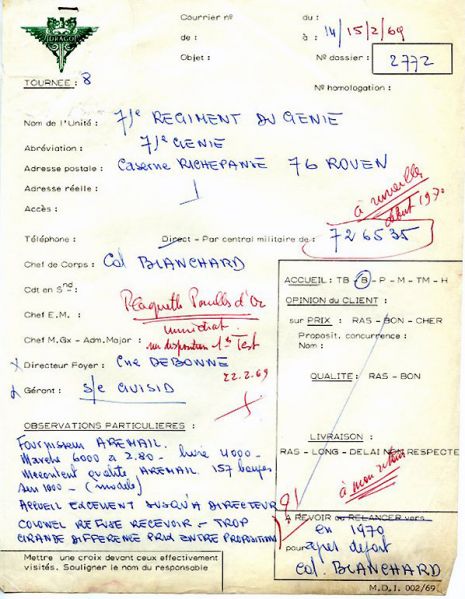 DRAGO
Courrier nº du :
de : à : 14/15/2/69
Objet : Nº dossier : 2772
TOURNEE : 8
Nº homologation :
Nom de l'Unité : 71e REGIMENT DU GENIE
Abréviation : 71e GENIE
Adresse postale : Caserne RICHEPANSE 76 ROUEN
Adresse réelle :
à surveiller
début 1970
Accès :
Téléphone : Direct - Par central militaire de : 726535
Chef de Corps : Col BLANCHARD
Cdt en Snd :
Plaquette Poulles d'Or
Chef E.M. :
Chef M.Gx - Adm.Major :
sur disposition 1er Test
Directeur Foyer : Cne DEBONNE
22.2.69
Gérant : s/c GUISID
ACCUEIL : TB - B - P - M - TM - H
OPINION du CLIENT :
sur PRIX : RAS - BON - CHER
Proposit. concurrence :
Nom :
QUALITE : RAS - BON
LIVRAISON :
RAS - LONG - DELAI NON RESPECTE
à mon retour
OBSERVATIONS PARTICULIERES :
Fournisseur AREMAIL.
Marché 6000 à 2.80 - livré 4000 -
Mécontent qualité AREMAIL 157 loupés
sur 1000 - (modèle)
ACCUEIL EXCELLENT JUSQU'A DIRECTEUR
COLONEL REFUSE RECEVOIR - TROP
GRANDE DIFFERENCE PRIX ENTRE PROPOSITION
A REVOIR ou RELANCER vers
en 1970
pour après départ
Col. BLANCHARD
Mettre une croix devant ceux effectivement
visités. Souligner le nom du responsable
M.D.I. 002/69